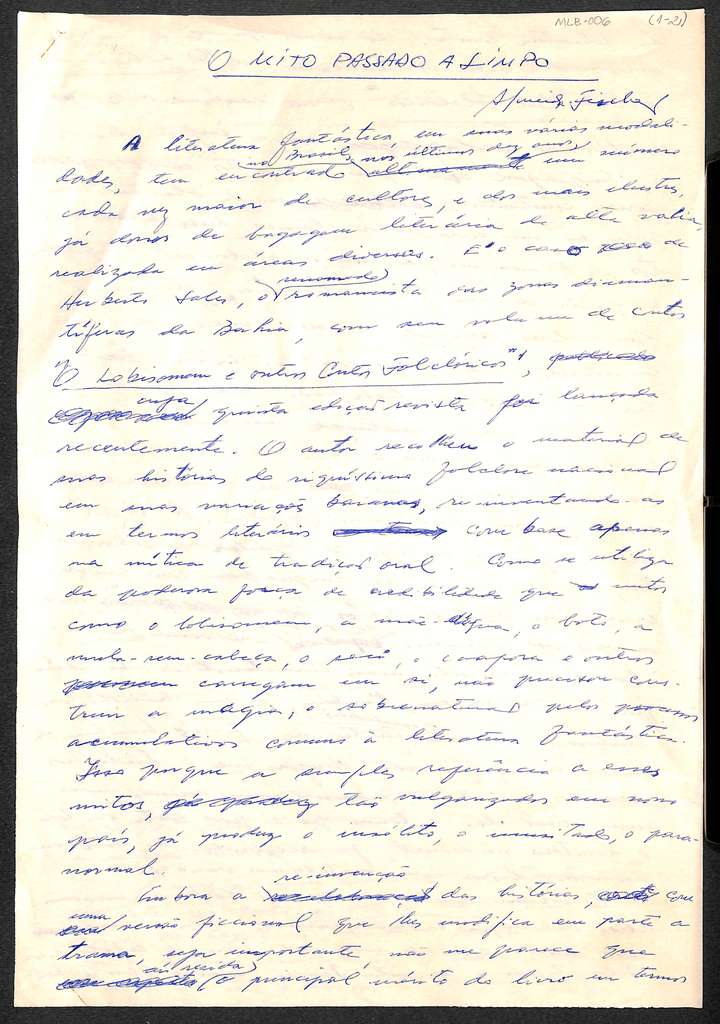 MLB-006 (1-21)
O MITO PASSADO A LIMPO
Almeida Fischer
A literatura fantástica em suas várias modali-
no Brasil, nos últimos dez anos
dades, tem encontrado um número
cada vez maior de cultores, e dos mais ilustres,
já donos de bagagem literária de alta valia,
realizada em áreas diversas. É o caso de
renomado
Herberto Sales, o romancista das zonas diaman-
tíferas da Bahia, com seu volume de contos
"O Lobisomem e outros Contos Folclóricos"1, publicado
cuja
quinta edição revista foi lançada
recentemente. O autor recolheu o material de
suas histórias do riquíssimo folclore nacional
em suas variações baianas, re-inventando-as
em termos literários com base apenas
na mítica de tradição oral. Como se utiliza
da poderosa força de credibilidade que mitos
como o lobisomem, a mãe-d'água, o boto, a
mula-sem-cabeça, o saci, o caapora e outros
carregam em si, não precisou cons-
truir a magia, o sobrenatural pelos processos
acumulativos comuns à literatura fantástica.
Isso porque a simples referência a esses
mitos, tão vulgarizados em nosso
país, já produz o insólito, o inusitado, o para-
normal.
re-invenção
Embora a das histórias, com
uma
versão ficcional que lhes modifica em parte a
trama, seja importante, não me parece que
aí resida
o principal mérito do livro em termos